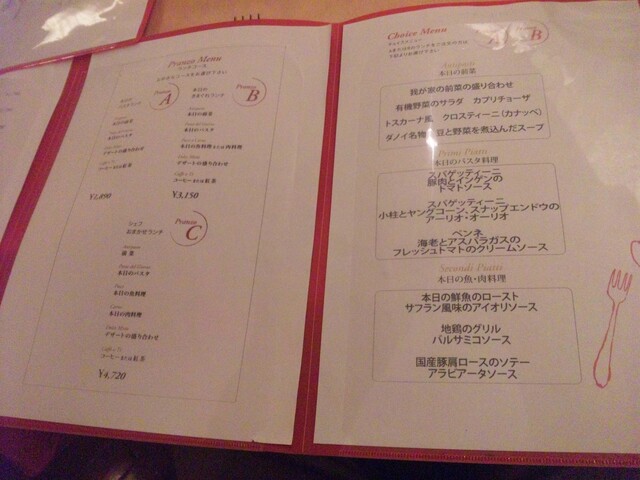 Pranzo Menu
Pranzo
A
本日の
きまぐれランチ
Pranzo
B
本日の前菜
本日のパスタ
デザートの盛り合わせ
コーヒーまたは紅茶
¥1,890
本日の前菜
本日のパスタ
本日の魚料理または肉料理
デザートの盛り合わせ
コーヒーまたは紅茶
¥3,150
シェフ
おまかせランチ
Pranzo
C
前菜
本日のパスタ
本日の魚料理
本日の肉料理
デザートの盛り合わせ
コーヒーまたは紅茶
¥4,720
Choice Menu
B
本日の前菜
我が家の前菜の盛り合わせ
有機野菜のサラダ カプリチョーザ
トスカーナ風 クロスティーニ(カナッペ)
ダノイ名物 豆と野菜を煮込んだスープ
Primi Piatti
本日のパスタ料理
スパゲッティーニ
豚肉とインゲンの
トマトソース
スパゲッティーニ
小柱とヤングコーン、スナップエンドウの
アーリオ・オーリオ
ペンネ
海老とアスパラガスの
フレッシュトマトのクリームソース
Secondi Piatti
本日の魚・肉料理
本日の鮮魚のロースト
サフラン風味のアイオリソース
地鶏のグリル
バルサミコソース
国産豚肩ロースのソテー
アラビアータソース